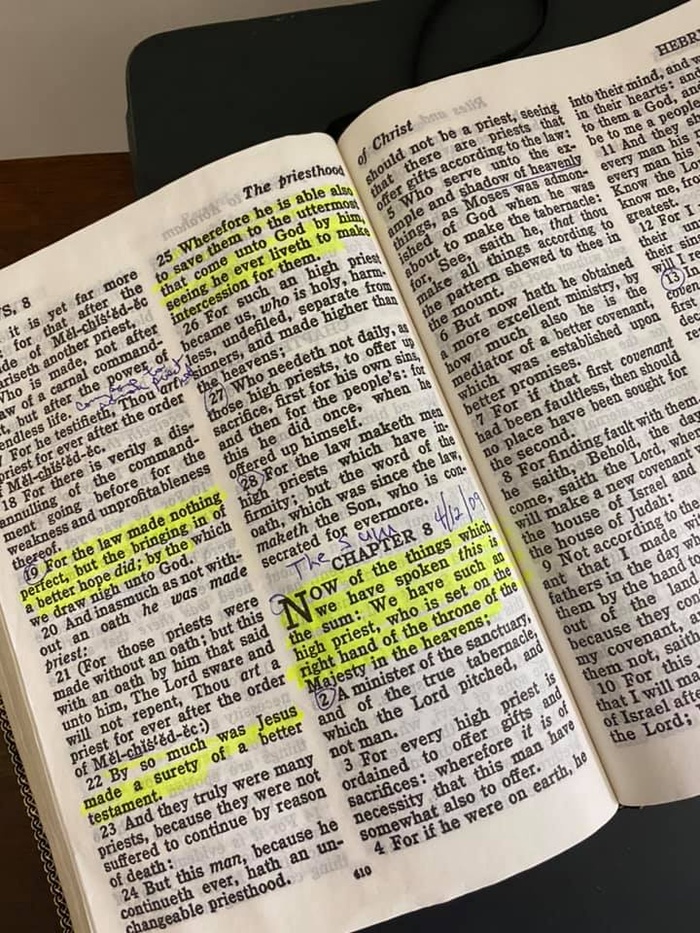 The priesthood
'S, 8
it is yet far more
: for that after the
de of Mĕl-chĭs´ĕd-ĕc
ariseth another priest,
Who is made, not after
aw of a carnal command-
t, but after the power of
endless life.
7 For he testifieth, Thou art
priest for ever after the order
f Mĕl-chĭs´ĕd-ĕc.
18 For there is verily a dis-
annulling of the command-
ment going before for the
weakness and unprofitableness
thereof.
19 For the law made nothing
perfect, but the bringing in of
a better hope did; by the which
we draw nigh unto God.
20 And inasmuch as not with-
out an oath he was made
priest:
21 (For those priests were
made without an oath; but this
with an oath by him that said
unto him, The Lord sware and
will not repent, Thou art a
priest for ever after the order
of Mĕl-chĭs´ĕd-ĕc:)
22 By so much was Jesus
made a surety of a better
testament.
23 And they truly were many
priests, because they were not
suffered to continue by reason
of death:
24 But this man, because he
continueth ever, hath an un-
changeable priesthood.
25 Wherefore he is able also
to save them to the uttermost
that come unto God by him,
seeing he ever liveth to make
intercession for them.
26 For such an high priest
became us, who is holy, harm-
less, undefiled, separate from
sinners, and made higher than
the heavens;
27 Who needeth not daily, as
those high priests, to offer up
sacrifice, first for his own sins,
and then for the people's: for
this he did once, when he
offered up himself.
28 For the law maketh men
high priests which have in-
firmity; but the word of the
oath, which was since the law,
maketh the Son, who is con-
secrated for evermore.
The Sum
CHAPTER 8 4/12/09
NOW of the things which
we have spoken this is
the sum: We have such an
high priest, who is set on the
right hand of the throne of the
Majesty in the heavens;
2 A minister of the sanctuary,
and of the true tabernacle,
which the Lord pitched, and
not man.
3 For every high priest is
ordained to offer gifts and
sacrifices: wherefore it is of
necessity that this man have
somewhat also to offer.
4 For if he were on earth, he
410
of Christ
HEBR
should not be a priest, seeing
that there are priests that
offer gifts according to the law:
5 Who serve unto the ex-
ample and shadow of heavenly
things, as Moses was admon-
ished of God when he was
about to make the tabernacle:
for, See, saith he, that thou
make all things according to
the pattern shewed to thee in
the mount.
6 But now hath he obtained
a more excellent ministry, by
how much also he is the
mediator of a better covenant,
which was established upon
better promises.
7 For if that first covenant
had been faultless, then should
no place have been sought for
the second.
8 For finding fault with them,
he saith, Behold, the
come, saith the Lord,
will make a new covenant
the house of Israel and
the house of Judah:
9 Not according to the
ant that I made
fathers in the day
them by the hand
out of the land
because they
my covenant,
them not, saith
10 For this
that I will ma
of Israel aft
the Lord;
into their mind, and
in their hearts: and
to them a God, and
be to me a people
11 And they
every man his
every man his
Know the L
know me, fro
greatest.
12 For I
their
will I re
13
cove
first